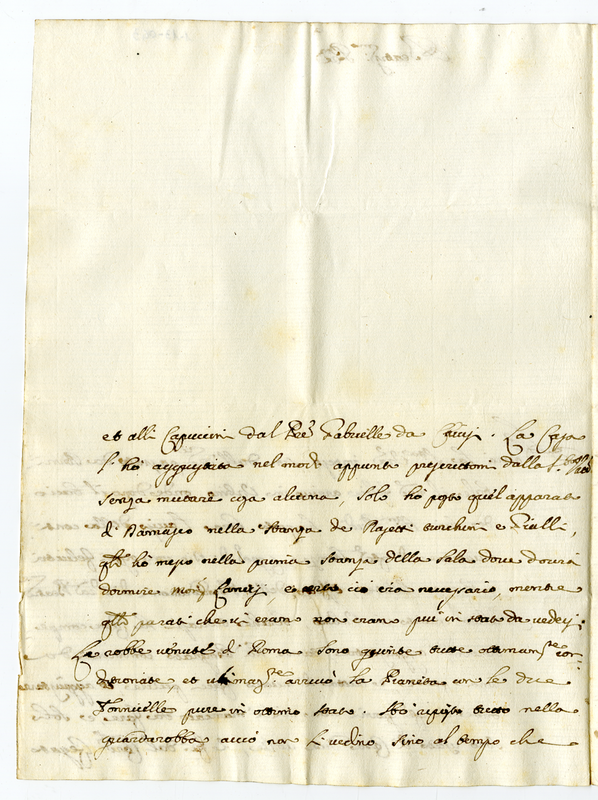 et alli Capuccini dal Pre Gabrielle da . La Casa
l'ho aggiustata nel modo appunto prescrittomi dalla
senza mutare cosa alcuna, solo ho posto quel apparato
di Damasco nella stanza de Rasetti turchini e Gialli,
qlli ho messo nella prima stanza della Sala dove dovrà
dormire Monr , e ciò era necessario, mentre
qlli parati che vi erano non erano più in stato da vedersi.
Le robbe venute di Roma sono giunte tutte ottimamte con-
ditionate, et ultimamte arrivò la Pianeta con le due
Tonnicelle pure in ottimo stato. Hò riposto tutto nella
guardarobba acciò non si vedino sino al tempo che